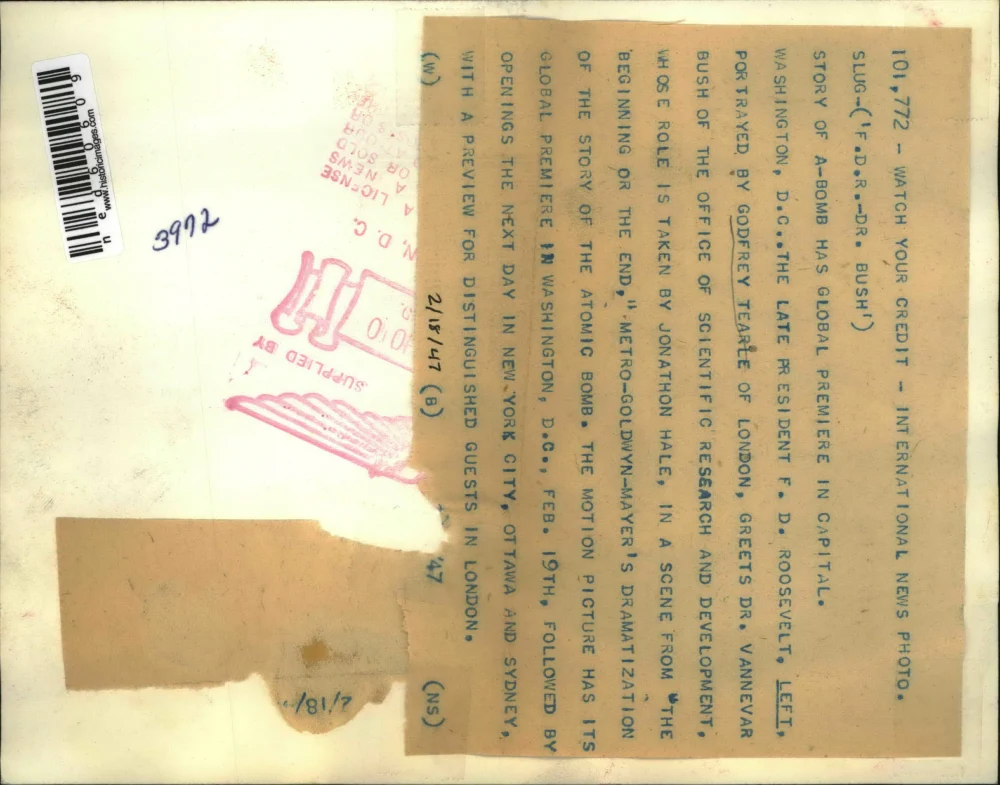 101,772 - WATCH YOUR CREDIT - INTERNATIONAL NEWS PHOTO.
SLUG-('F.D.R.-DR. BUSH')
STORY OF A-BOMB HAS GLOBAL PREMIERE IN CAPITAL.
WASHINGTON, D.C..THE LATE PRESIDENT F. D. ROOSEVELT, LEFT,
PORTRAYED BY GODFREY TEARLE OF LONDON, GREETS DR. VANNEVAR
BUSH OF THE OFFICE OF SCIENTIFIC RESEARCH AND DEVELOPMENT,
WHOSE ROLE IS TAKEN BY JONATHON HALE, IN A SCENE FROM "THE
BEGINNING OR THE END," METRO-GOLDWYN-MAYER'S DRAMATIZATION
OF THE STORY OF THE ATOMIC BOMB. THE MOTION PICTURE HAS ITS
GLOBAL PREMIERE IN WASHINGTON, D.C., FEB. 19TH, FOLLOWED BY
OPENINGS THE NEXT DAY IN NEW YORK CITY, OTTAWA AND SYDNEY,
WITH A PREVIEW FOR DISTINGUISHED GUESTS IN LONDON.
(W) 2/18/47 (B) '47 (NS)
2/18/
SUPPLIED BY
N, D. C.
A LICENSE
A NEWS
OR SOLD
3972
www.historicimages.com